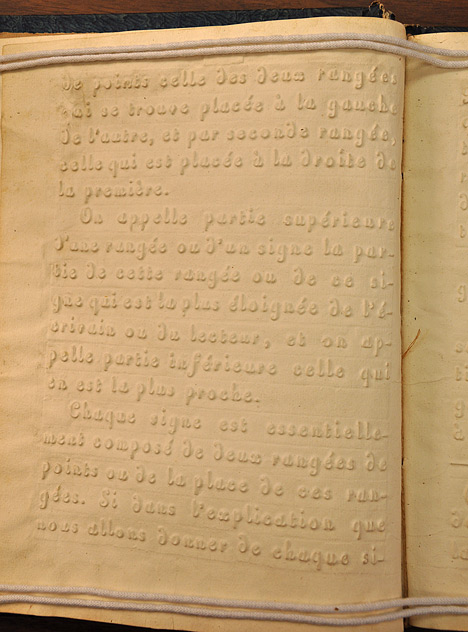 de points celle des deux rangées
qui se trouve placée à la gauche
de l'autre, et par seconde rangée,
celle qui est placée à la droite de
la première.
On appelle partie supérieure
d'une rangée ou d'un signe la par-
tie de cette rangée ou de ce si-
gne qui est la plus éloignée de l'é-
crivain ou du lecteur, et on ap-
pelle partie inférieure celle qui
en est la plus proche.
Chaque signe est essentielle-
ment composé de deux rangées de
points ou de la place de ces ran-
gées. Si dans l'explication que
nous allons donner de chaque si-